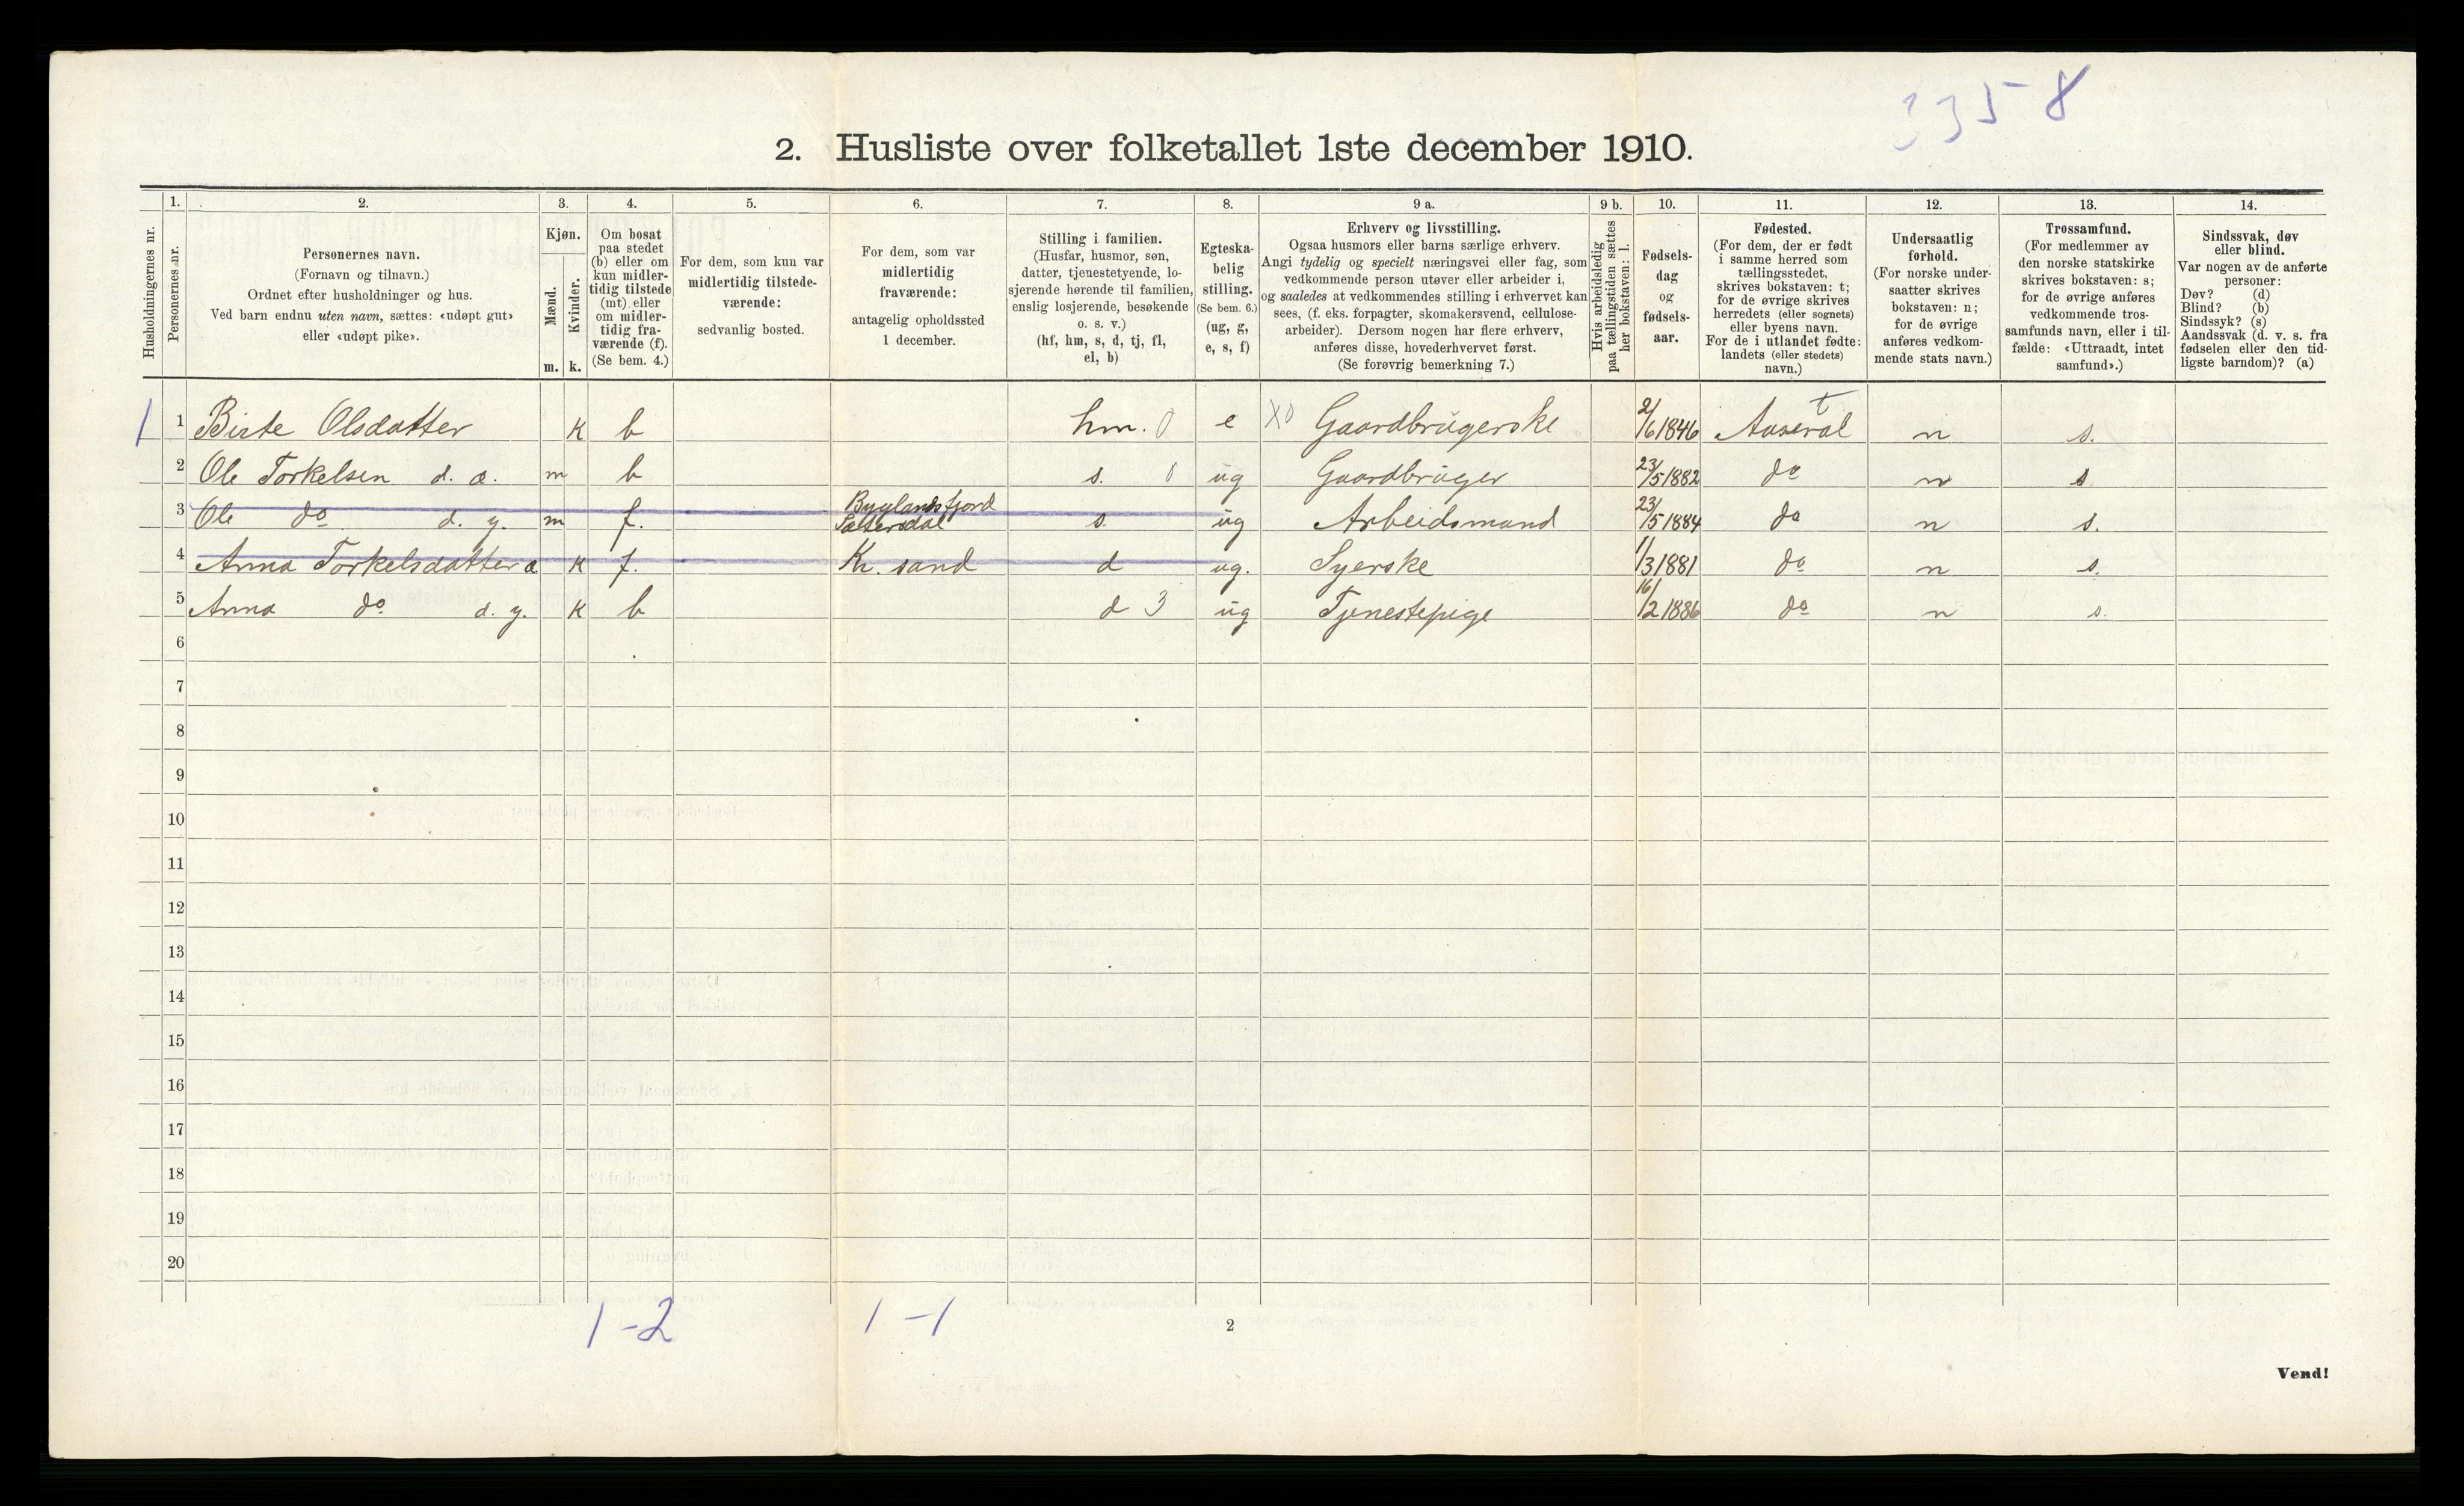 3358
2. Husliste over folketallet 1ste december 1910.
1. 2. 3. 4. 5. 6. 7. 8. 9 a. 9 b. 10. 11. 12. 13. 14.
Husholdningernes nr.
Personernes nr.
Personernes navn.
(Fornavn og tilnavn.)
Ordnet efter husholdninger og hus.
Ved barn endnu uten navn, sættes: «udøpt gut»
eller «udøpt pike».
Kjøn.
Mænd.
Kvinder.
m. k.
Om bosat
paa stedet
(b) eller om
kun midler-
tidig tilstede
(mt) eller
om midler-
tidig fra-
værende (f).
(Se bem. 4.)
For dem, som kun var
midlertidig tilstede-
værende:
sedvanlig bosted.
For dem, som var
midlertidig
fraværende:
antagelig opholdssted
1 december.
Stilling i familien.
(Husfar, husmor, søn,
datter, tjenestetyende, lo-
sjerende hørende til familien,
enslig losjerende, besøkende
o. s. v.)
(hf, hm, s, d, tj, fl,
el, b)
Egteska-
belig
stilling.
(Se bem. 6.)
(ug, g,
e, s, f)
Erhverv og livsstilling.
Ogsaa husmors eller barns særlige erhverv.
Angi tydelig og specielt næringsvei eller fag, som
vedkommende person utøver eller arbeider i,
og saaledes at vedkommendes stilling i erhvervet kan
sees, (f. eks. forpagter, skomakersvend, cellulose-
arbeider). Dersom nogen har flere erhverv,
anføres disse, hovederhvervet først.
(Se forøvrig bemerkning 7.)
Hvis arbeidsledig
paa tællingstiden sættes
her bokstaven: l.
Fødsels-
dag
og
fødsels-
aar.
Fødested.
(For dem, der er født
i samme herred som
tællingsstedet,
skrives bokstaven: t;
for de øvrige skrives
herredets (eller sognets)
eller byens navn.
For de i utlandet fødte:
landets (eller stedets)
navn.)
Undersaatlig
forhold.
(For norske under-
saatter skrives
bokstaven: n;
for de øvrige
anføres vedkom-
mende stats navn.)
Trossamfund.
(For medlemmer av
den norske statskirke
skrives bokstaven: s;
for de øvrige anføres
vedkommende tros-
samfunds navn, eller i til-
fælde: «Uttraadt, intet
samfund».)
Sindssvak, døv
eller blind.
Var nogen av de anførte
personer:
Døv? (d)
Blind? (b)
Sindssyk? (s)
Aandssvak (d. v. s. fra
fødselen eller den tid-
ligste barndom)? (a)
1 1 Birte Olsdatter K b hm. 0 e X0 Gaardbrugerske 2/6 1846 Aaseral t n s.
2 Ole Torkelsen d. æ. m b s. 0 ug Gaardbruger 23/5 1882 do n s
3 Ole do d. y. m f. Byglandsfjord Sætersdal s. ug Arbeidsmand 23/5 1884 do n s.
4 Anna Torkelsdatter æ K f. Kr. sand d ug. Syerske 1/3 1881 do n s.
5 Anna do d. y. K b d 3 ug Tjenestepige 16/2 1886 do n s.
6
7
8
9
10
11
12
13
14
15
16
17
18
19
20
1-2 1-1
2
Vend!